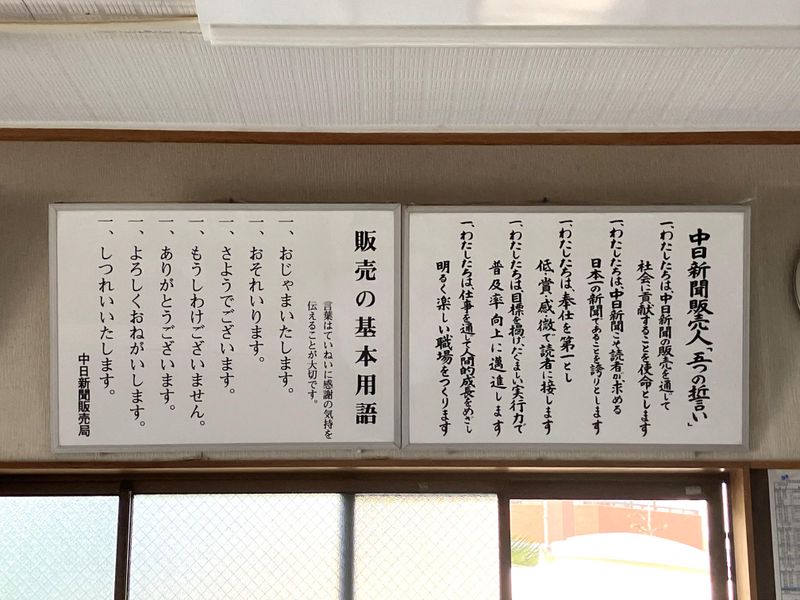 中日新聞販売人「五つの誓い」
一、わたしたちは、中日新聞の販売を通じて
社会に貢献することを使命とします
一、わたしたちは、中日新聞こそ読者が求める
日本一の新聞であることを誇りとします
一、わたしたちは、奉仕を第一とし
低・賞・感・微で読者に接します
一、わたしたちは、目標を掲げ、たくましい実行力で
普及率向上に邁進します
一、わたしたちは、仕事を通じて人間的成長をめざし
明るく楽しい職場をつくります
販売の基本用語
言葉はていねいに感謝の気持を
伝えることが大切です。
一、おじゃまいたします。
一、おそれいります。
一、さようでございます。
一、もうしわけございません。
一、ありがとうございます。
一、よろしくおねがいします。
一、しつれいいたします。
中日新聞販売局